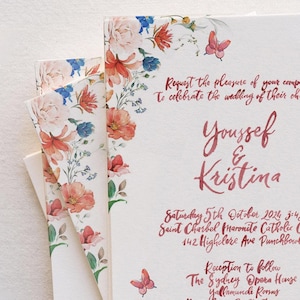 Request the pleasure of your comp
To celebrate the wedding of their
Youssef
&
Kristina
Saturday 5th October 2024 3:4
Saint Charbel Maronite Catholic C
142 Highclere Ave Punchbow
Reception to follow
The Sydney Opera House
Yallamundi Rooms